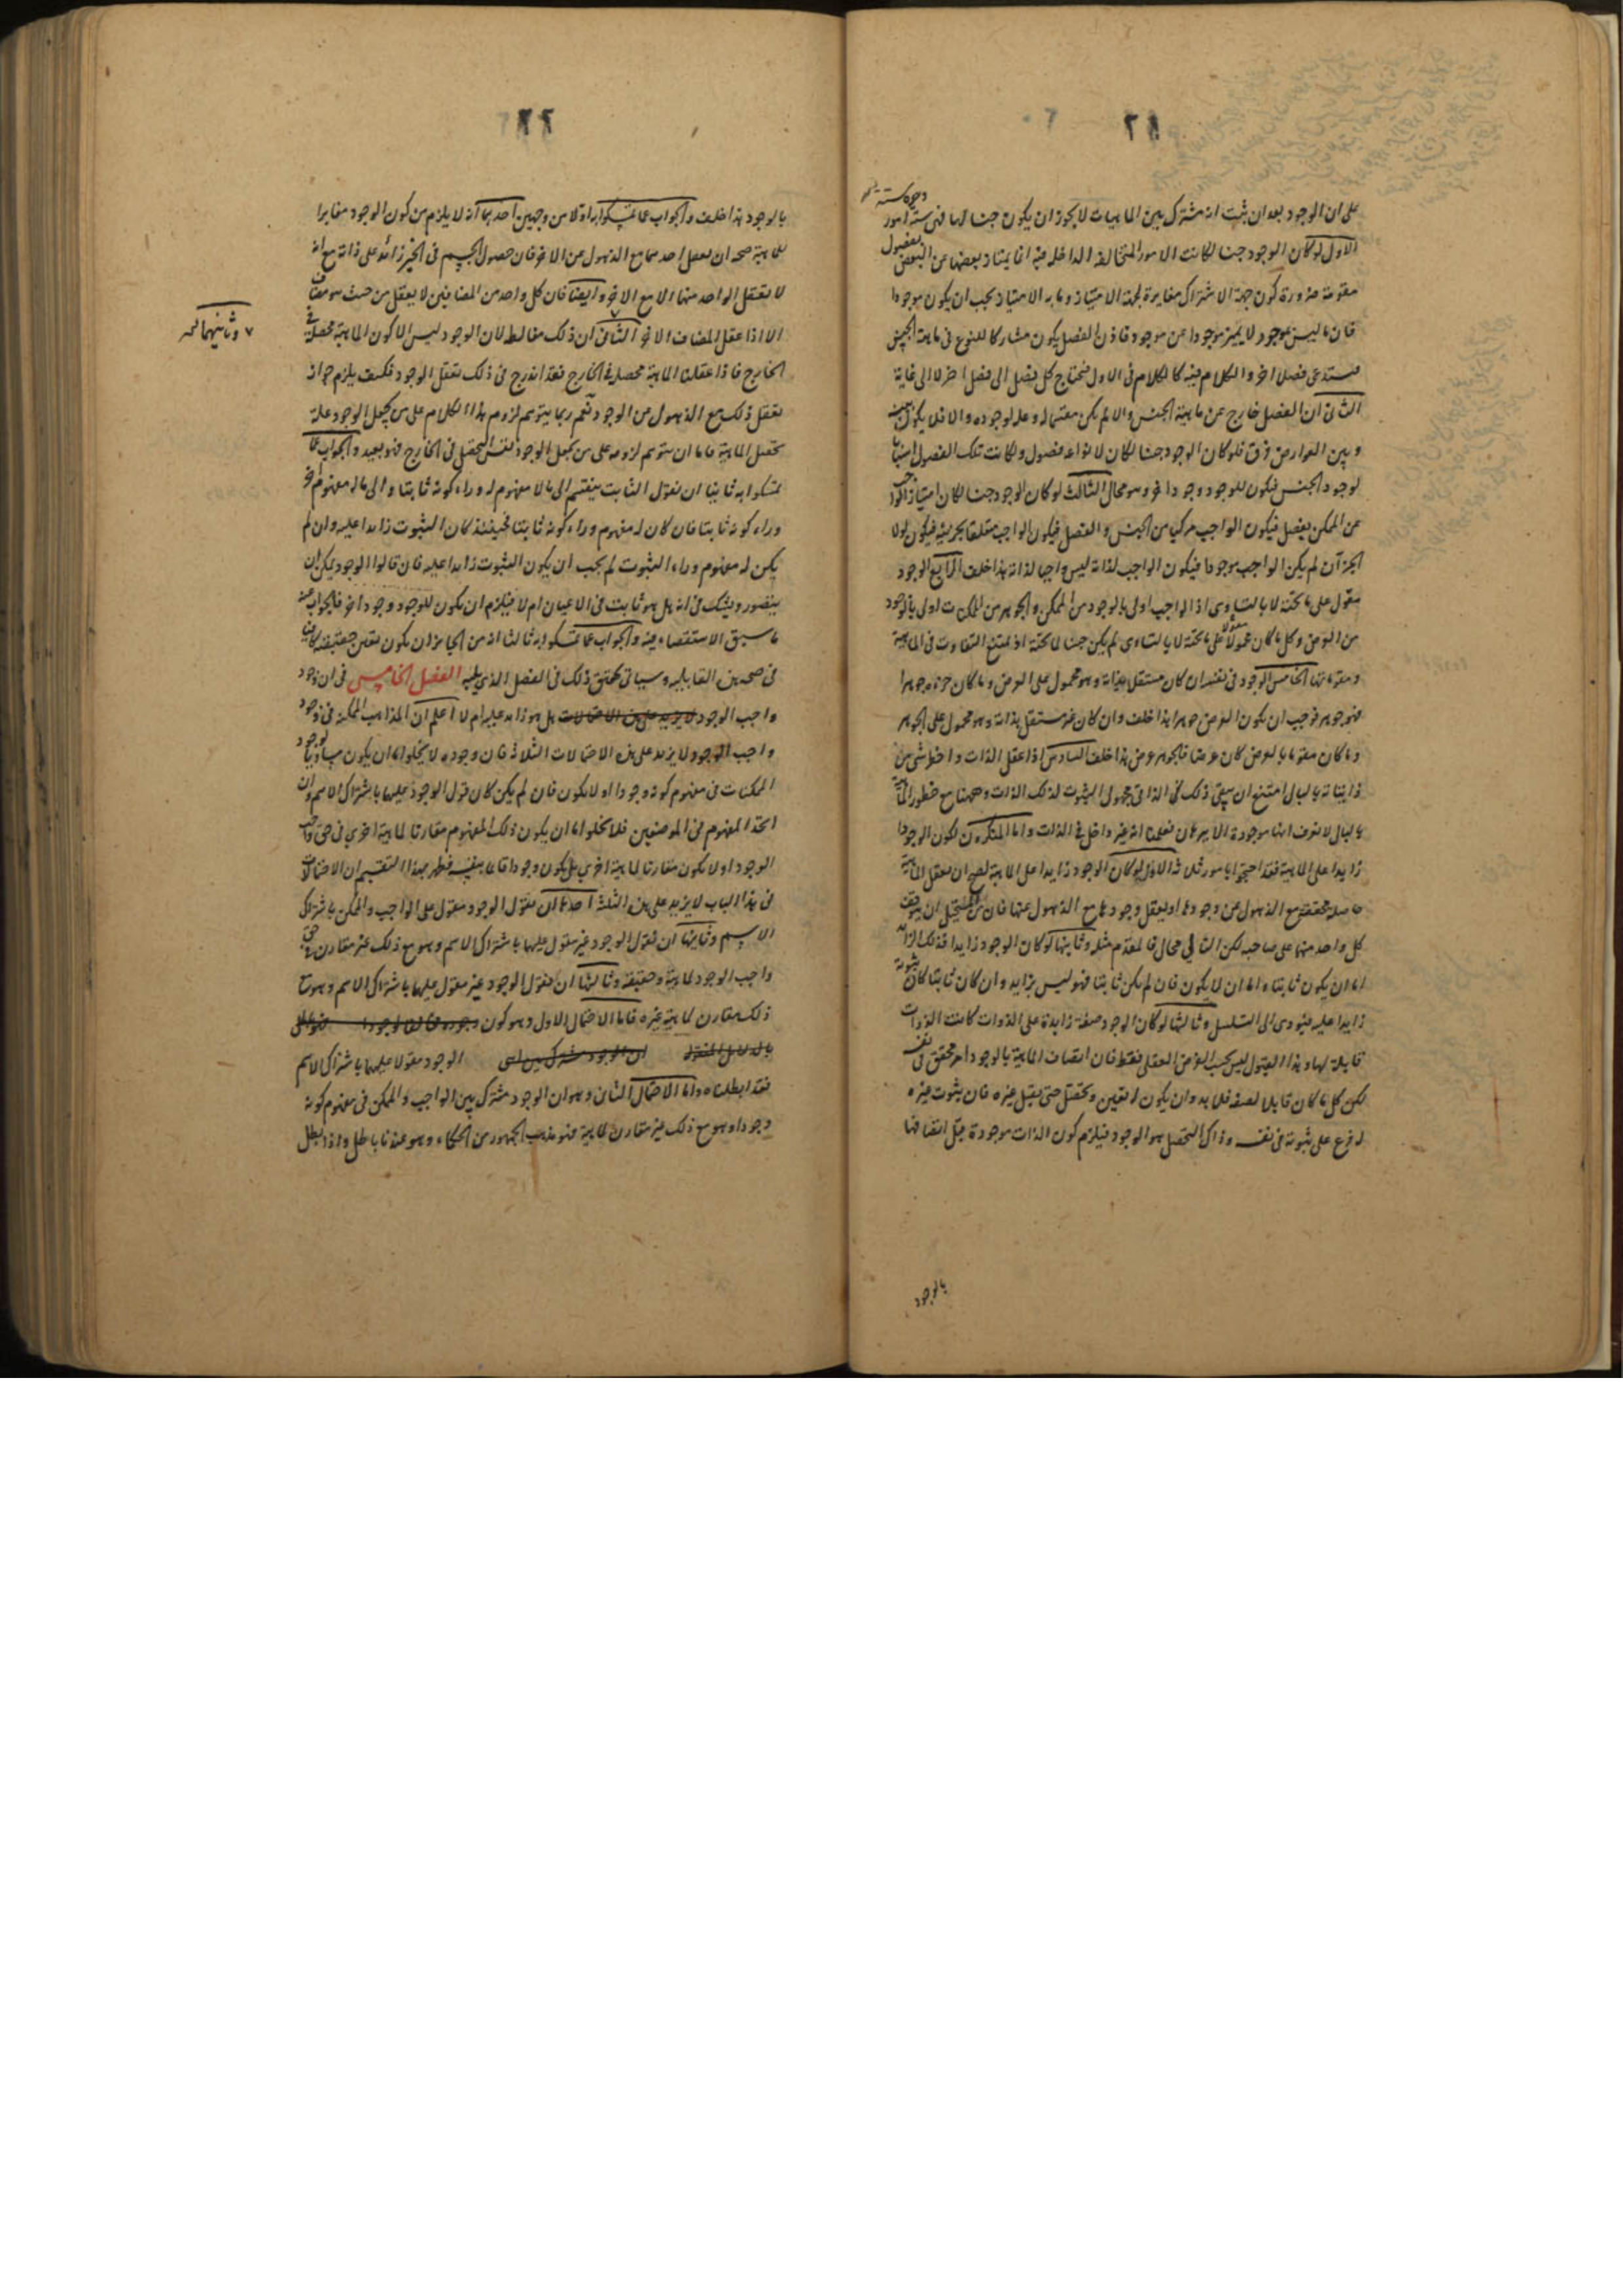 على ان الوجود بعد ان ثبت انه مشترك بين الماهيات لا يجوز ان يكون جنسا لها فنى ستة امور
وجوه ستة
الاول لو كان الوجود جنسا لكانت الامور المتخالفة الداخلة فيه انما يمتاز بعضها عن البعض بفصول
مقومة ضرورة كون جهة الاشتراك مغايرة لجهة الامتياز وما به الامتياز يجب ان يكون موجودا
فان ما ليس بموجود لا يميز موجودا عن موجود فاذن الفصل يكون مشاركا للنوع فى ماهية الجنس
فيستدعى فصلا اخر والكلام فيه كالكلام فى الاول فيحتاج كل فصل الى فصل اخر لا الى غاية
الثانى ان الفصل خارج عن ماهية الجنس والا لم يكن مقسما له وعلة لوجوده والا فلا يكون بينه
وبين العوارض فرق فلو كان الوجود جنسا لكان لانواعه فصول ولكانت تلك الفصول اسبابا
لوجود الجنس فيكون للوجود وجود اخر وهو محال الثالث لو كان الوجود جنسا لكان امتياز الواجب
عن الممكن بفصل فيكون الواجب مركبا من الجنس والفصل فيكون الواجب متعلقا بجزئيه فيكون لولا
الجزآن لم يكن الواجب موجودا فيكون الواجب لذاته ليس واجبا لذاته هذا خلف الرابع الوجود
مقول على ما تحته لا بالتساوى اذ الواجب اولى بالوجود من الممكن والجوهر من الممكنات اولى بالوجود
من العرض وكل ما كان مقولا على ما تحته لا بالتساوى لم يكن جنسا لما تحته اذ يمتنع التفاوت فى الماهية
ومقوماتها الخامس الوجود فى نفسه ان كان مستقلا بذاته وهو محمول على العرض وما كان جزءه جوهرا
فهو جوهر فوجب ان يكون العرض جوهرا هذا خلف وان كان غير مستقل بذاته وهو محمول على الجوهر
وما كان مقوما بالعرض كان عرضا فالجوهر عرض هذا خلف السادس اذا عقل الذات واخطر شى من
ذاتياته بالبال امتنع ان يبقى ذلك الذاتى مجهول الثبوت لذلك الذات وههنا مع خطور الماهية
بالبال لا نعرف انها موجودة الا ببرهان فعلمنا انه غير داخل فى الذات واما المنكرون لكون الوجود
زايدا على الماهية فقد احتجوا بامور ثلاثة الاول لو كان الوجود زايدا على الماهية لصح ان نعقل الماهية
حاصلة محققة مع الذهول عن وجودها او نعقل وجودها مع الذهول عنها فان من المستحيل ان يتوقف
كل واحد منهما على صاحبه لكن التالى محال فالمقدم مثله وثانيها لو كان الوجود زايدا فذلك الزائد
اما ان يكون ثابتا واما ان لا يكون فان لم يكن ثابتا فهو ليس بزايد وان كان ثابتا كان ثبوته
زايدا عليه فيؤدى الى التسلسل وثالثها لو كان الوجود صفة زايدة على الذوات كانت الذوات
قابلة لها وهذا القبول ليس بحسب الفرض العقلى فقط فان اتصاف الماهية بالوجود امر محقق فى نفسه
لكن كل ما كان قابلا لصفة فلا بد وان يكون له تعين وتحصل حتى يقبل غيره فان ثبوت غيره
له فرع على ثبوته فى نفسه وذاك التحصل هو الوجود فيلزم كون الذات موجودة قبل اتصافها
بالوجود
بالوجود هذا خلف والجواب عما تمسكوا به اولا من وجهين احدهما انه لا يلزم من كون الوجود مغايرا
للماهية صحة ان نعقل احدهما مع الذهول عن الاخر فان حصول الجسم فى الحيز زائد على ذاته مع انه
لا نعقل الواحد منهما الا مع الاخر وايضا فان كل واحد من المضافين لا يعقل من حيث هو مضاف
الا اذا عقل المضاف الاخر الثانى ان ذلك مغالطة لان الوجود ليس الا كون الماهية محصلة فى
٧ وثانيهما
الخارج فاذا عقلنا الماهية محصلة فى الخارج فقد اندرج فى ذلك تعقل الوجود فكيف يلزم جواز
تعقل ذلك مع الذهول عن الوجود نعم ربما يتوهم لزوم هذا الكلام على من يجعل الوجود علة
تحصل الماهية فاما ان يتوهم لزومه على من يجعل الوجود نفس التحصل فى الخارج فهو بعيد والجواب عما
تمسكوا به ثانيا ان نقول الثابت ينقسم الى ما لا مفهوم له وراء كونه ثابتا والى ما له مفهوم اخر
وراء كونه ثابتا فان كان له مفهوم وراء كونه ثابتا فحينئذ كان الثبوت زايدا عليه وان لم
يكن له مفهوم وراء الثبوت لم يجب ان يكون الثبوت زايدا عليه فان قالوا الوجود يمكن ان
يتصور ويشك فى انه هل هو ثابت فى الاعيان ام لا فيلزم ان يكون للوجود وجود اخر فالجواب عنه
ما سبق الاستقصاء فيه والجواب عما تمسكوا به ثالثا انه من الجايز ان يكون تعين حقيقته كافيا
فى صحة هذه القابلية وسياتى تحقيق ذلك فى الفصل الذى يليه الفصل الخامس فى ان وجود
واجب الوجود لا يزيد على هذه الاحتمالات هل هو زايد عليه ام لا اعلم ان المذاهب الممكنة فى وجود
واجب الوجود لا يزيد على هذه الاحتمالات الثلاثة فان وجوده لا يخلو اما ان يكون مساويا لوجود
الممكنات فى مفهوم كونه وجودا او لا يكون فان لم يكن كان قول الوجود عليهما باشتراك الاسم وان
اتحد المفهوم فى الموضعين فلا يخلوا اما ان يكون ذلك المفهوم مقارنا لماهية اخرى فى حق واجب
الوجود او لا يكون مقارنا لماهية اخرى بل يكون وجودا قائما بنفسه فظهر بهذا التقسيم ان الاحتمالات
فى هذا الباب لا يزيد على هذه الثلثة احدها ان نقول الوجود مقول على الواجب والممكن باشتراك
الاسم وثانيها ان نقول الوجود غير مقول عليهما باشتراك الاسم وهو مع ذلك غير مقارن فى حق
واجب الوجود لماهية وحقيقة وثالثها ان نقول الوجود غير مقول عليهما باشتراك الاسم وهو مع
ذلك مقارن لماهية غيره فاما الاحتمال الاول وهو كون
الوجود مقولا عليهما باشتراك الاسم
فقد ابطلناه واما الاحتمال الثانى وهو ان الوجود مشترك بين الواجب والممكن فى مفهوم كونه
وجودا وهو مع ذلك غير مقارن لماهية فهو مذهب الجمهور من الحكماء وهو عندنا باطل واذا بطل